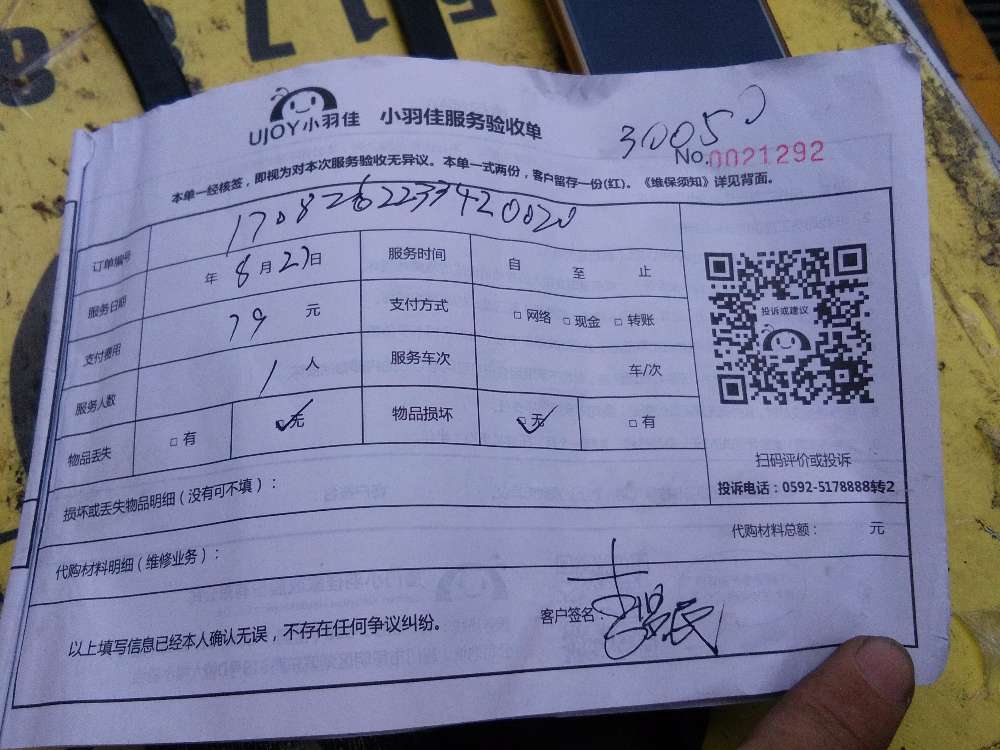 UJOY小羽佳 小羽佳服务验收单
30050
No.0021292
本单一经核签，即视为对本次服务验收无异议。本单一式两份，客户留存一份(红)。《维保须知》详见背面。
订单编号 1708262233420020
服务日期 年 8月27日 服务时间 自 至 止
支付费用 79 元 支付方式 □网络 □现金 □转账
服务人数 1 人 服务车次 车/次
物品丢失 □有 ☑无 物品损坏 ☑无 □有
投诉或建议
扫码评价或投诉
投诉电话：0592-5178888转2
损坏或丢失物品明细（没有可不填）：
代购材料明细（维修业务）： 代购材料总额： 元
以上填写信息已经本人确认无误，不存在任何争议纠纷。 客户签名：